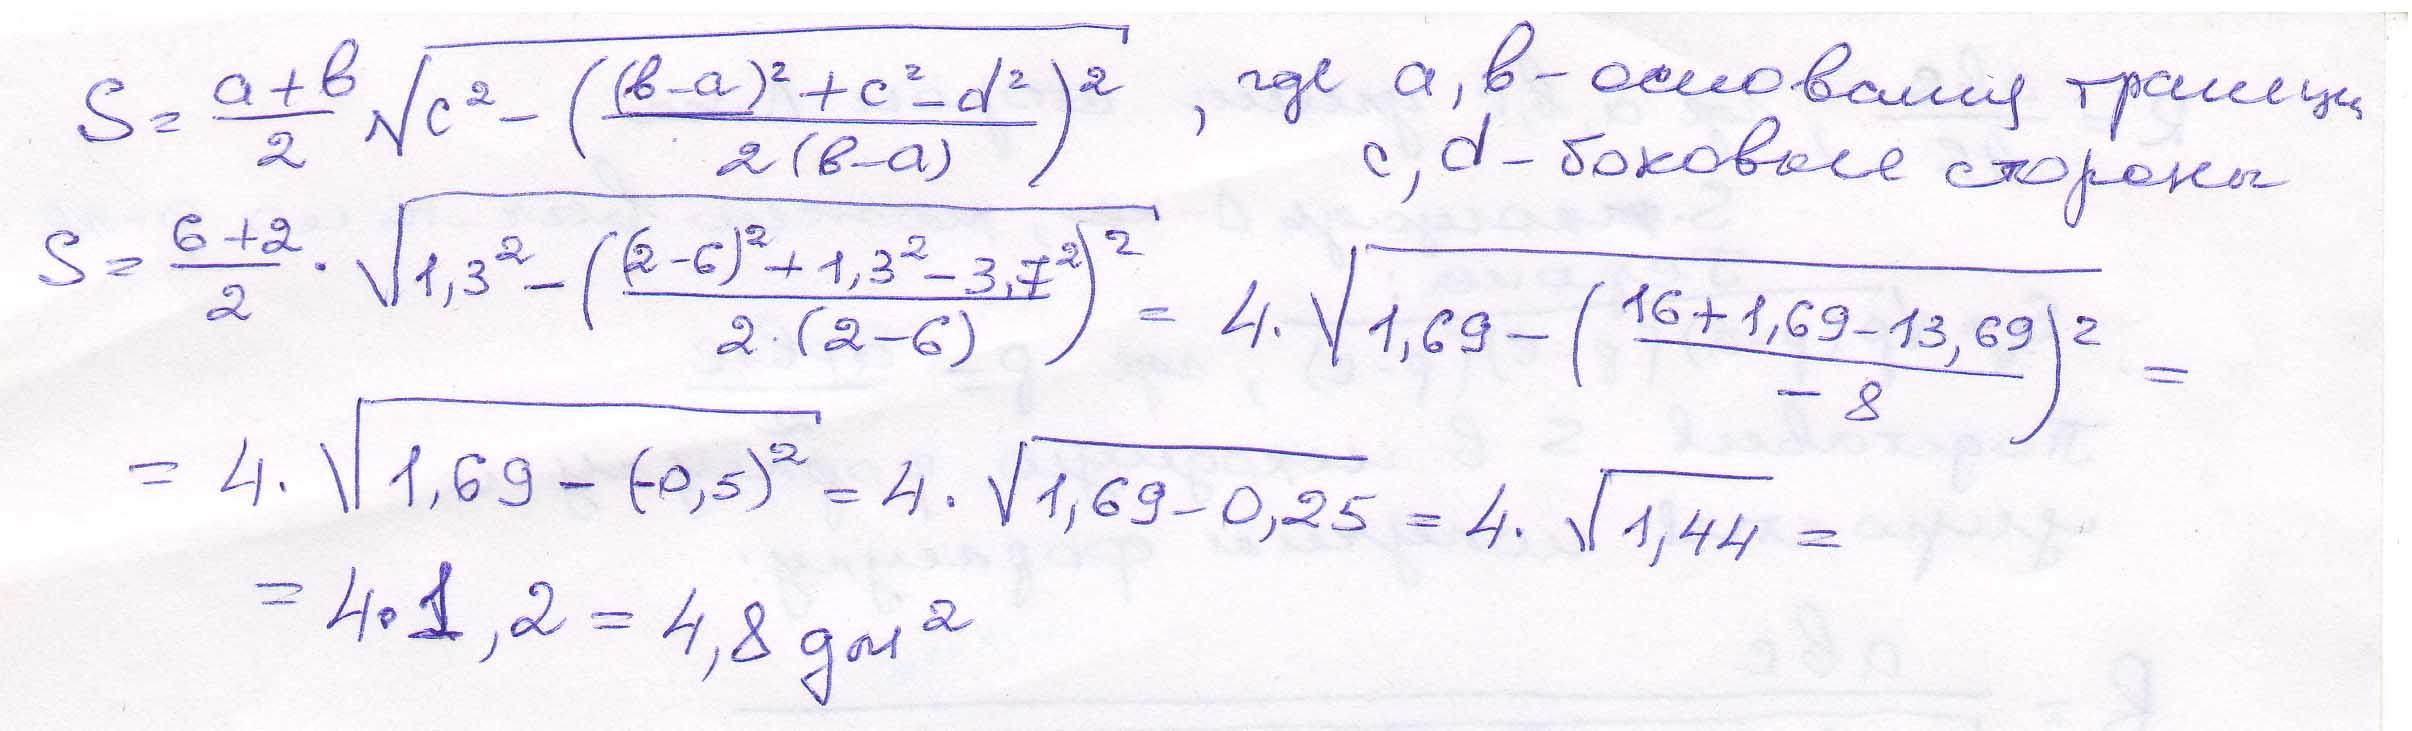 S = \frac{a+в}{2} \sqrt{c² - (\frac{(в-a)² + c² - d²}{2(в-a)})²}, где a, в - основания трапеции
c, d - боковые стороны
S = \frac{6+2}{2} · \sqrt{1,3² - (\frac{(2-6)² + 1,3² - 3,7²}{2·(2-6)})²} = 4· \sqrt{1,69 - (\frac{16+1,69-13,69}{-8})²} =
= 4· \sqrt{1,69 - (-0,5)²} = 4· \sqrt{1,69 - 0,25} = 4· \sqrt{1,44} =
= 4·1,2 = 4,8 дм²